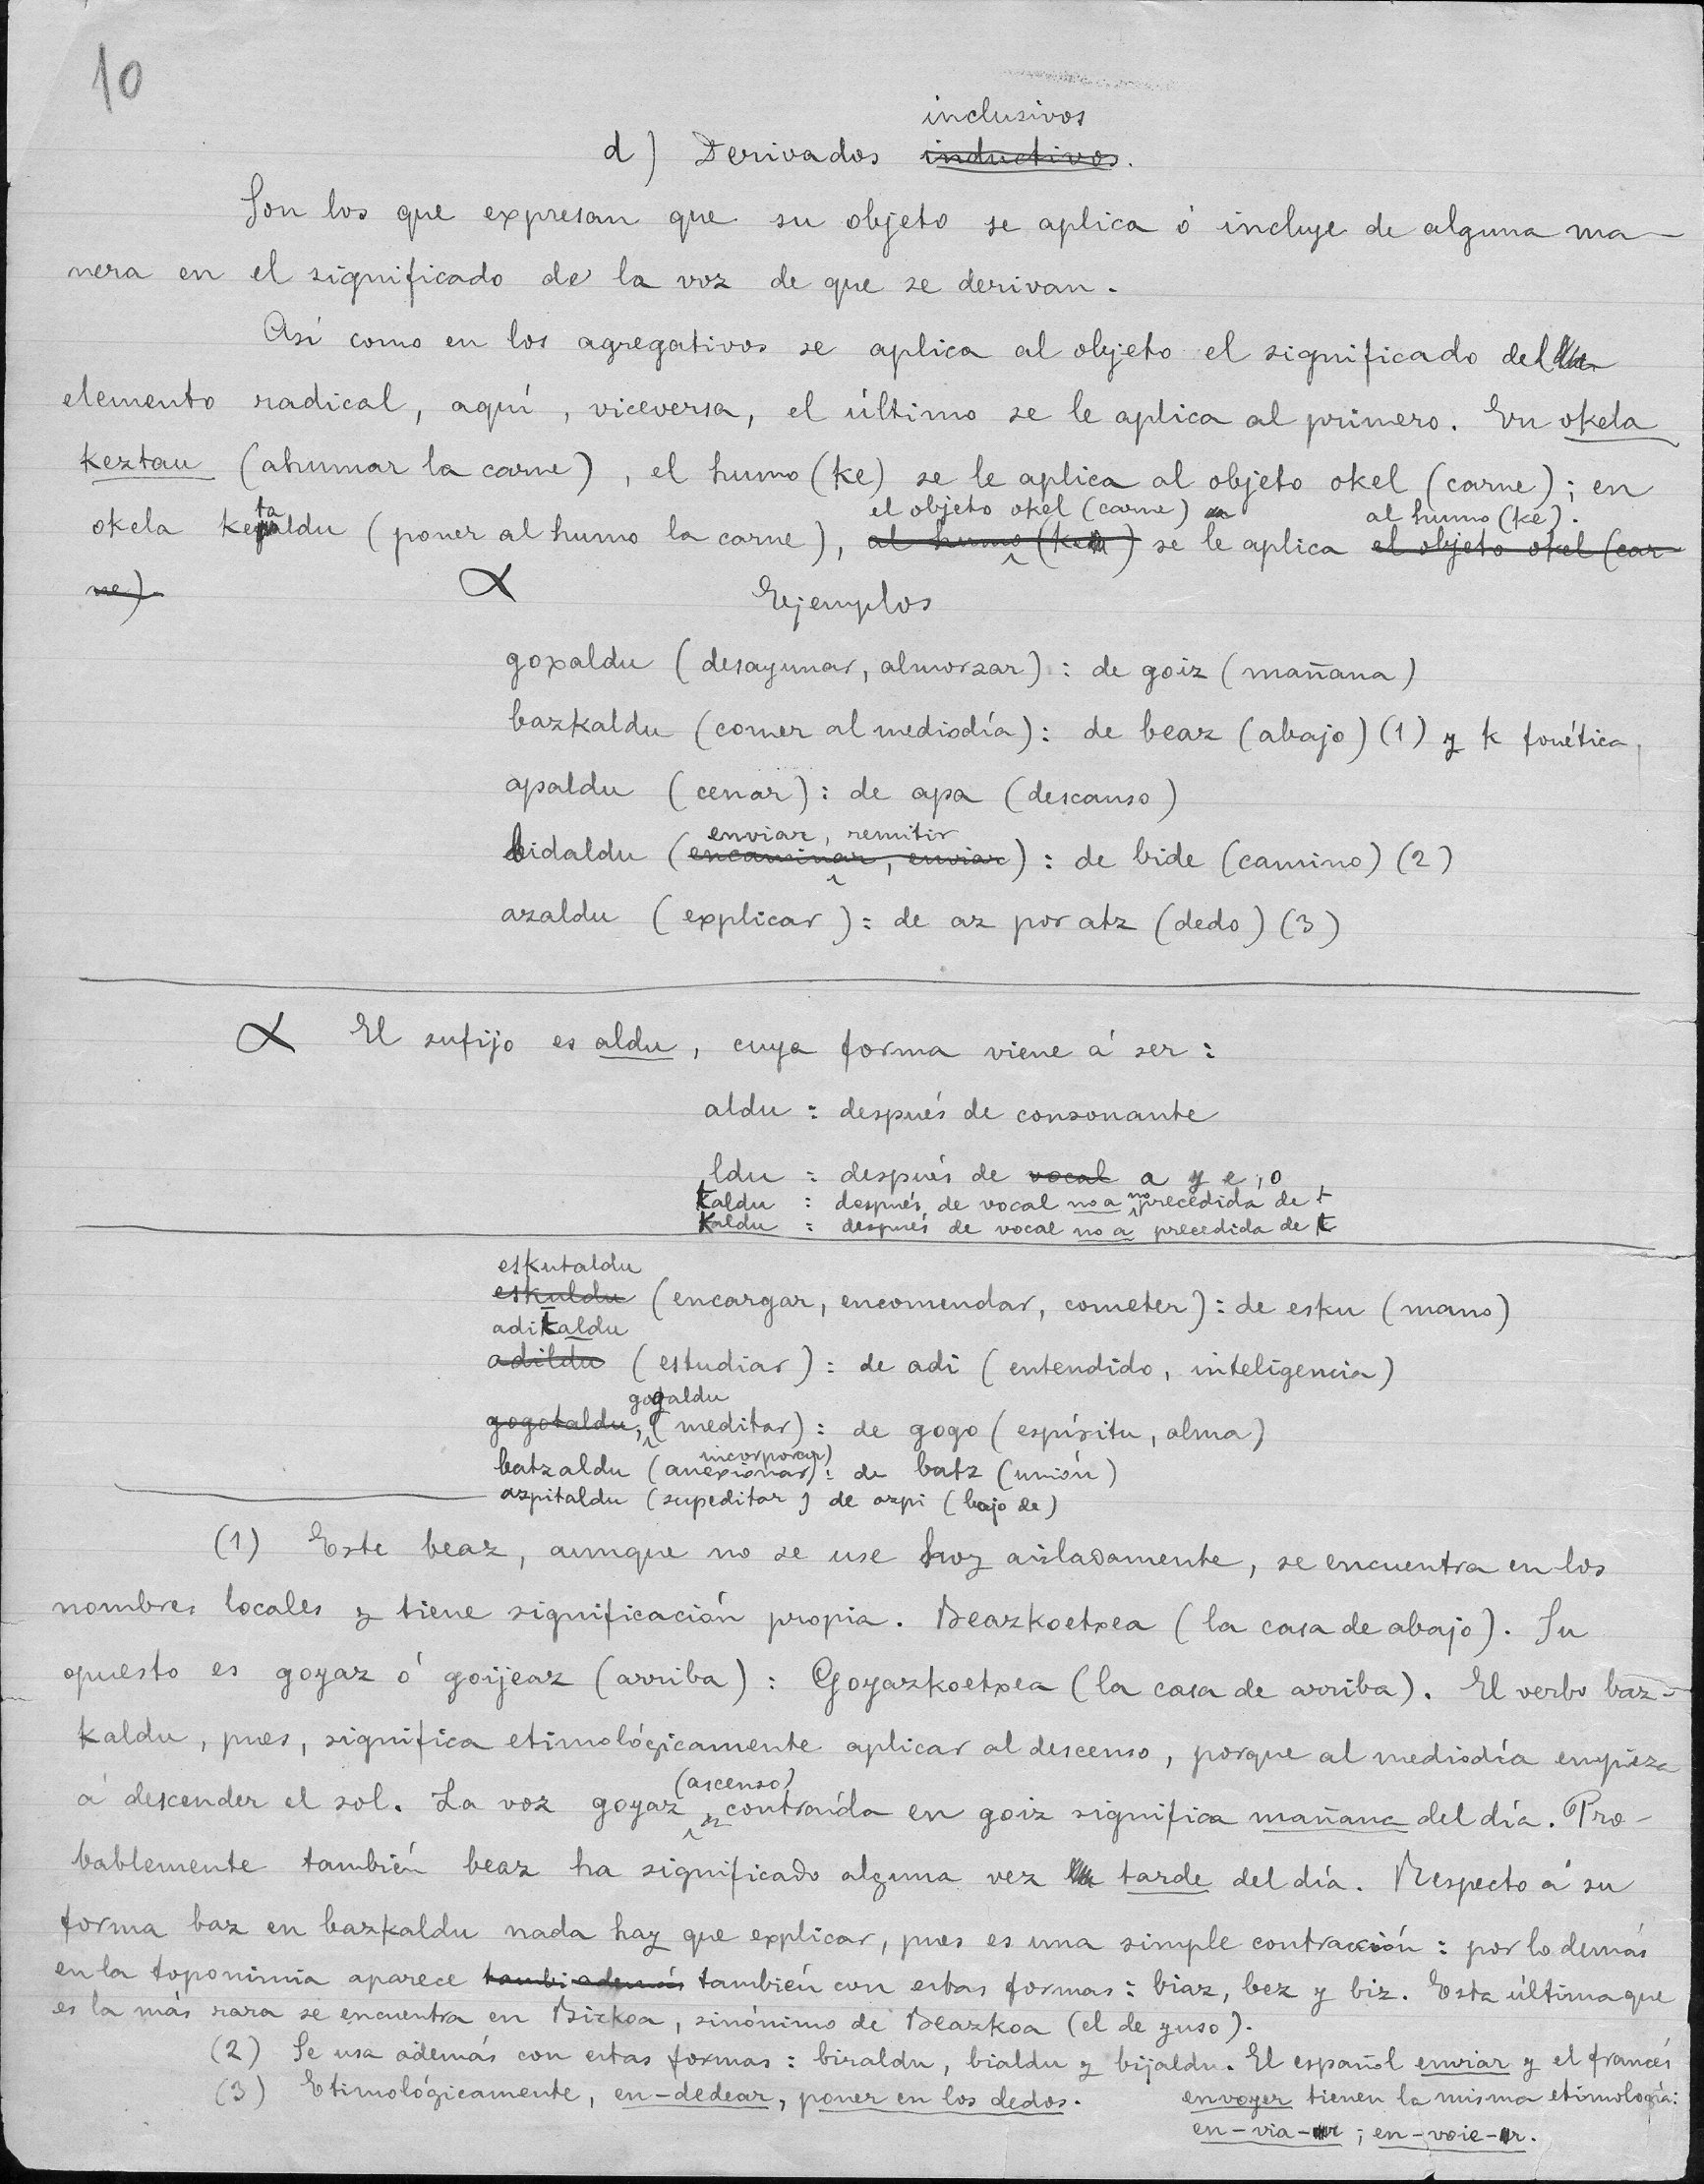 10
inclusivos
d) Derivados inductivos.
Son los que expresan que su objeto se aplica ó incluye de alguna ma-
nera en el significado de la voz de que se derivan.
Así como en los agregativos se aplica al objeto el significado del
elemento radical, aquí, viceversa, el último se le aplica al primero. En okela
keztau (ahumar la carne), el humo (ke) se le aplica al objeto okel (carne); en
ta el objeto okel (carne) al humo (ke).
okela kealdu (poner al humo la carne), al humo (ke) se le aplica el objeto okel (car-
ne)
α Ejemplos
goxaldu (desayunar, almorzar): de goiz (mañana)
bazkaldu (comer al mediodía): de beaz (abajo) (1) y k fonética,
apaldu (cenar): de apa (descanso)
enviar, remitir
bidaldu (encaminar, enviar): de bide (camino) (2)
azaldu (explicar): de az por atz (dedo) (3)
α El sufijo es aldu, cuya forma viene á ser:
aldu : después de consonante
ldu : después de vocal a y e, o
taldu : después de vocal no a no precedida de t
kaldu : después de vocal no a precedida de t
eskutaldu
eskuldu (encargar, encomendar, cometer): de esku (mano)
aditaldu
adildu (estudiar): de adi (entendido, inteligencia)
gogaldu
gogotaldu, (meditar): de gogo (espíritu, alma)
incorporar)
batzaldu (anexionar): de batz (unión)
azpitaldu (supeditar) de azpi (bajo de)
(1) Este beaz, aunque no se use hoy aisladamente, se encuentra en los
nombres locales y tiene significación propia. Beazkoetxea (la casa de abajo). Su
opuesto es goyaz ó goijeaz (arriba): Goyazkoetxea (la casa de arriba). El verbo baz-
kaldu, pues, significa etimológicamente aplicar al descenso, porque al mediodía empieza
(ascenso)
á descender el sol. La voz goyaz contraída en goiz significa mañana del día. Pro-
bablemente también beaz ha significado alguna vez tarde del día. Respecto á su
forma baz en bazkaldu nada hay que explicar, pues es una simple contracción: por lo demás
en la toponimia aparece tambi además también con estas formas: biaz, bez y biz. Esta última que
es la más rara se encuentra en Bizkoa, sinónimo de Beazkoa (el de yuso).
(2) Se usa además con estas formas: biraldu, bialdu y bijaldu. El español enviar y el francés
envoyer tienen la misma etimología:
en-via-r; en-voie-r.
(3) Etimológicamente, en-dedear, poner en los dedos.